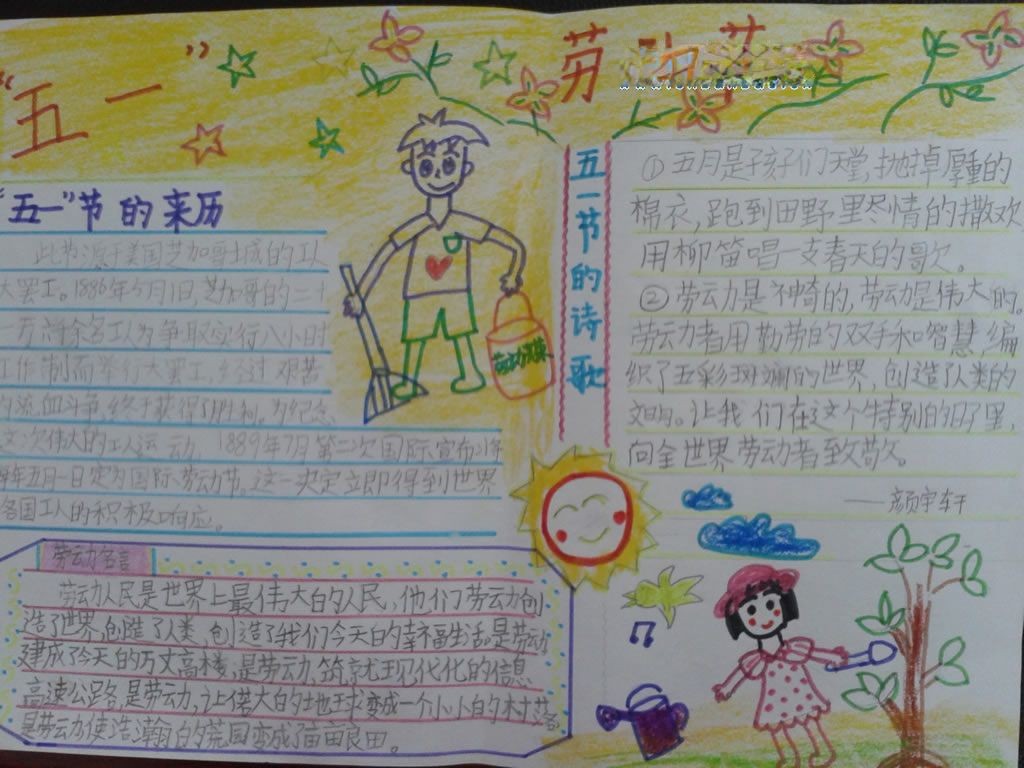 “五一”
劳动节
“五一”节的来历
此节源于美国芝加哥城的工人
大罢工。1886年5月1日,芝加哥的二十
一万六千余名工人为争取实行八小时
工作制而举行大罢工,经过艰苦
的流血斗争,终于获得了胜利。为纪念
这次伟大的工人运动,1889年7月第二次国际宣布将
每年五月一日定为国际劳动节。这一决定立即得到世界
各国工人的积极响应。
劳动名言
劳动人民是世界上最伟大的人民,他们劳动创
造了世界,创造了人类,创造了我们今天的幸福生活。是劳动
建成了今天的万丈高楼;是劳动,筑就现代化的信息
高速公路,是劳动,让偌大的地球变成一个小小的村落,
是劳动使浩瀚的荒园变成了亩亩良田。
劳动光荣
五一节的诗歌
①五月是孩子们天堂,抛掉厚重的
棉衣,跑到田野里尽情的撒欢
用柳笛唱一支春天的歌。
②劳动是神奇的,劳动是伟大的。
劳动者用勤劳的双手和智慧,编
织了五彩斑斓的世界,创造了人类的
文明。让我们在这个特别的日子里,
向全世界劳动者致敬。
——颜宇轩